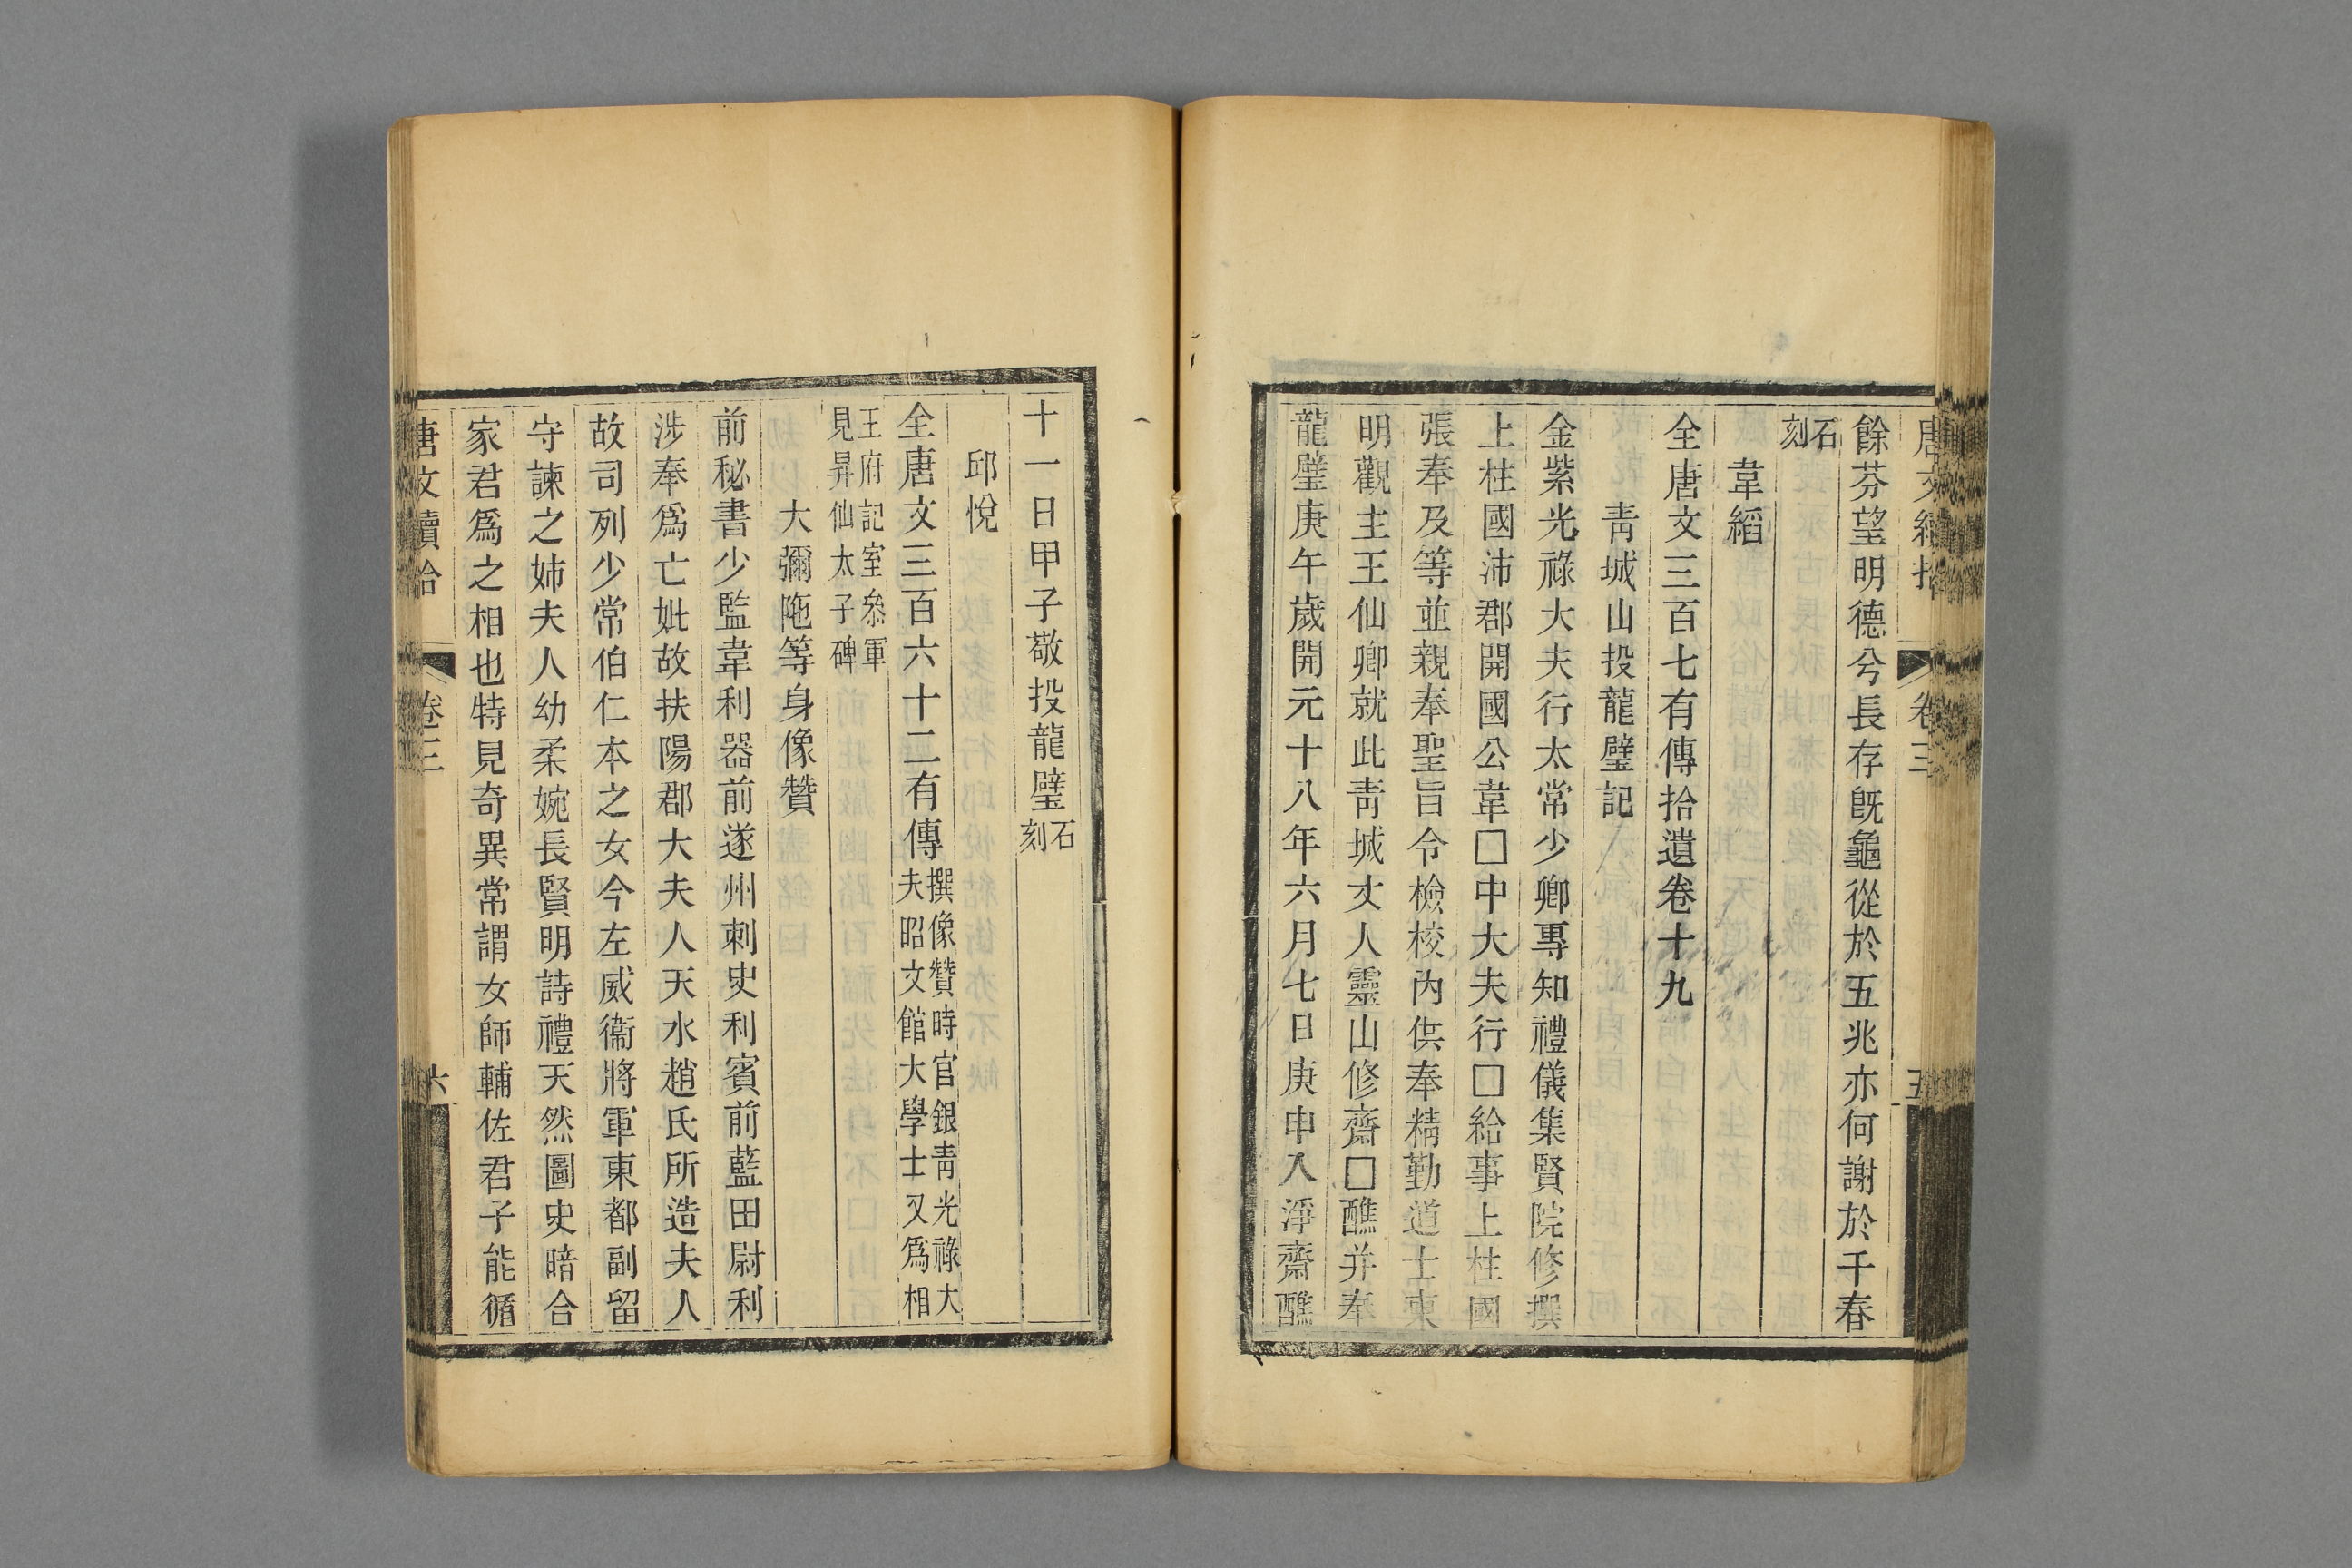 唐文續拾 卷三 五
餘芬望明德兮長存旣龜從於五兆亦何謝於千春
石刻
韋縚
全唐文三百七有傳拾遺卷十九
靑城山投龍璧記
金紫光祿大夫行太常少卿專知禮儀集賢院修撰
上柱國沛郡開國公韋□中大夫行□給事上柱國
張奉及等並親奉聖旨令檢校內供奉精勤道士東
明觀主王仙卿就此靑城丈人靈山修齋□醮并奉
龍璧庚午歲開元十八年六月七日庚申入淨齋醮
十一日甲子敬投龍璧石刻
邱悅
全唐文三百六十二有傳撰像贊時官銀靑光祿大夫昭文館大學士又爲相
王府記室叅軍見昇仙太子碑
大彌陁等身像贊
前秘書少監韋利器前遂州刺史利賓前藍田尉利
涉奉爲亡妣故扶陽郡大夫人天水趙氏所造夫人
故司列少常伯仁本之女今左威衞將軍東都副留
守諫之姊夫人幼柔婉長賢明詩禮天然圖史暗合
家君爲之相也特見奇異常謂女師輔佐君子能循
唐文續拾 卷三 六